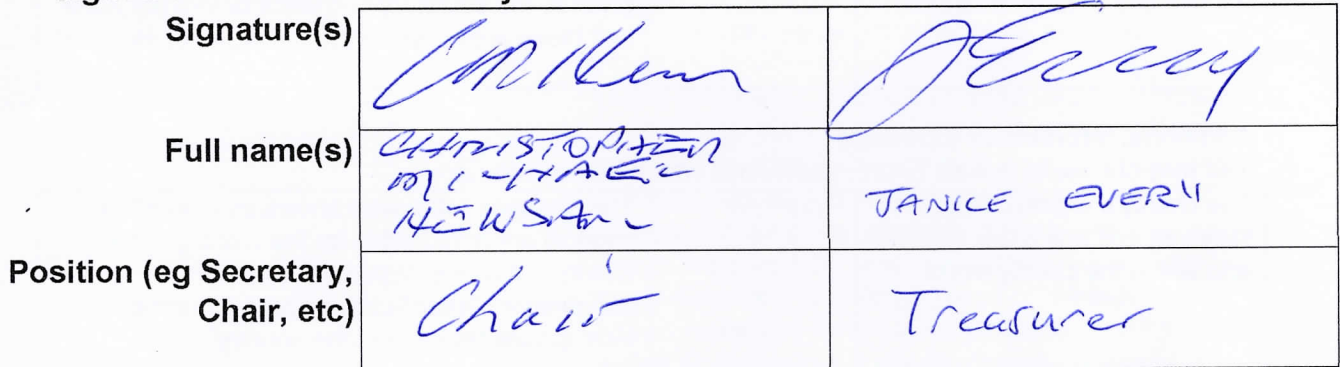 Signature(s)
Full name(s)
CHRISTOPHER
MICHAEL
JANICE EVERY
Position (eg Secretary,
Chair, etc)
Chair
Treasurer